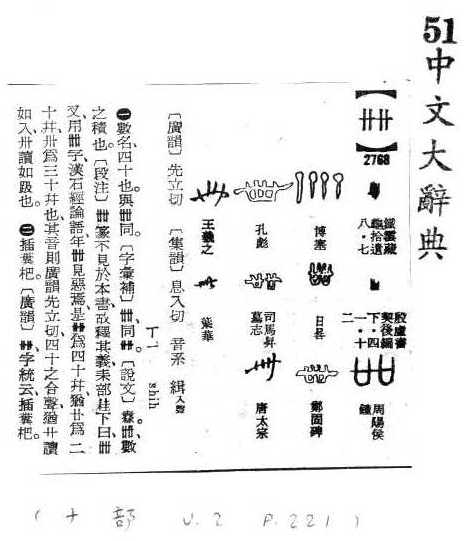 51中文大辭典
【卌】
2768
鐵雲藏
龜拾遺
八・七
殷虛書
契後編
下・四
一・十
二
周陽侯
鐘
博塞
日晷
鄭固碑
孔彪
司馬昇
墓志
唐太宗
王羲之
葉華
〔廣韻〕先立切 〔集韻〕息入切 音系 緝入聲
ㄒㄧ shih
㊀數名、四十也。與卌同。〔字彙補〕卌、同卌。〔說文〕卌、數
之積也。〔段注〕卌、篆不見於本書、故釋其義、未部下曰、卌
叉、用卌字、漢石經論語、年卌見惡焉、是卌爲四十幷、猶廿爲二
十幷、卅爲三十幷也、其音則廣韻先立切、四十之合聲、猶廿讀
如入、卅讀如趿也。㊁插糞杷。〔廣韻〕卌、字統云、插糞杷。
(十部 V.2 P.221)